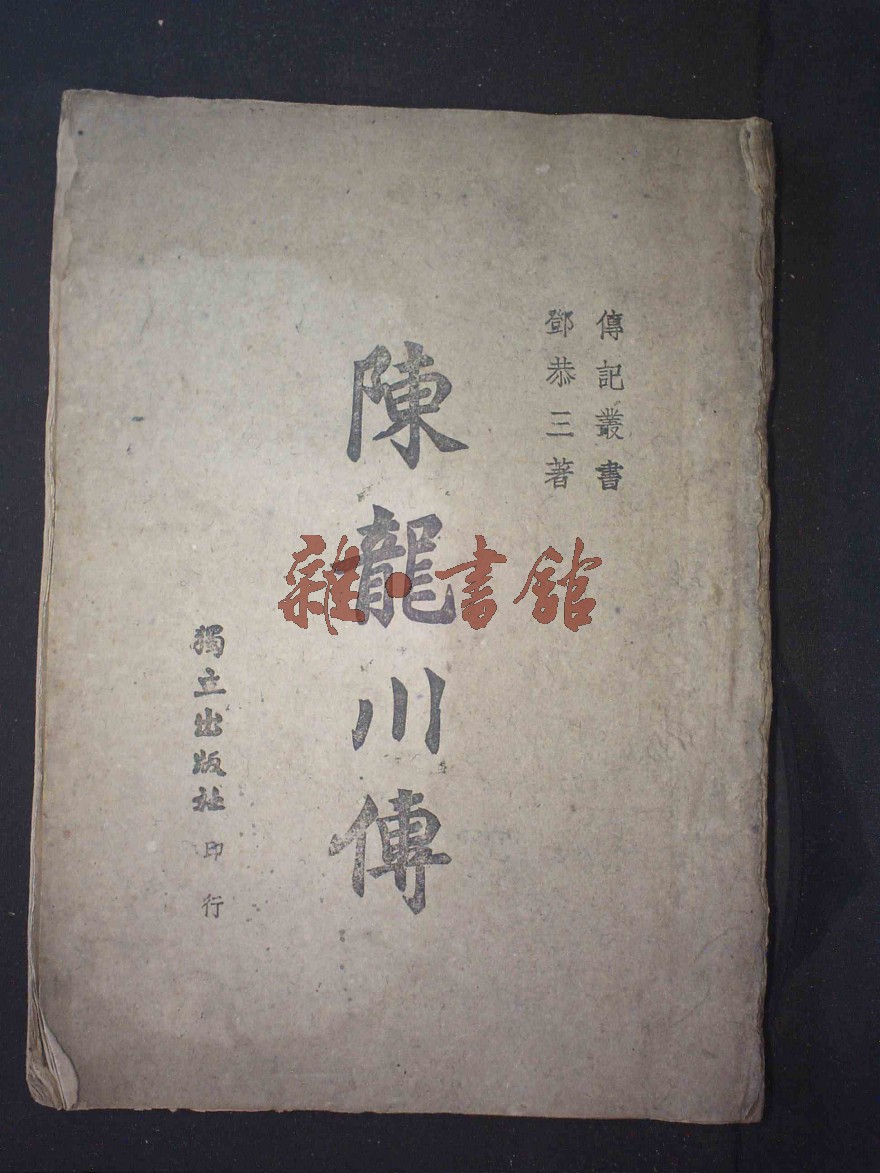 傳記叢書
鄧恭三著
陳龍川傳
獨立出版社印行
雜·書館